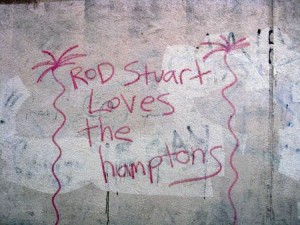 ROD Stuart
Loves
the
hamptons